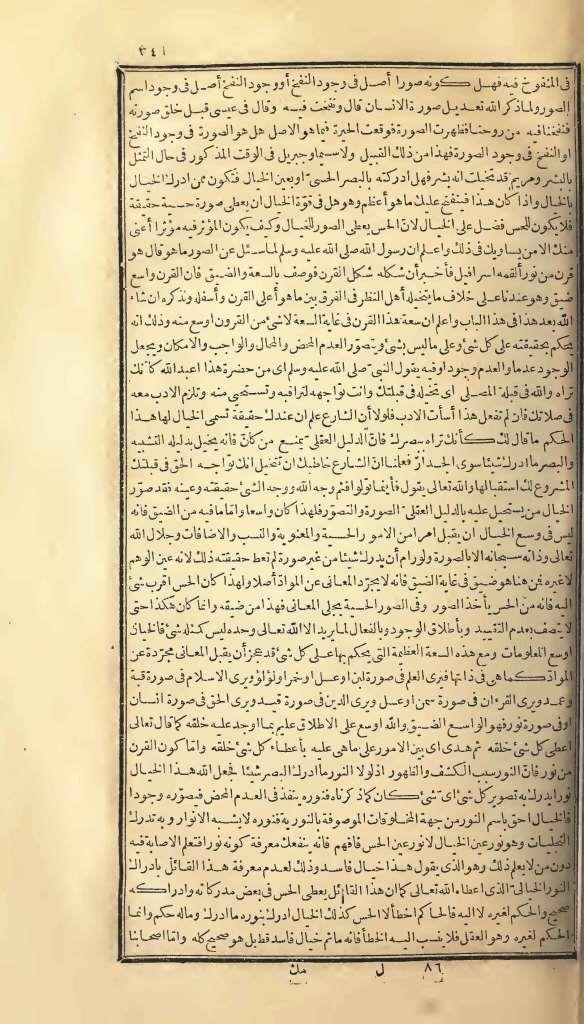 ٣٤١
فى المنفوخ فيه فهل كونه صورا أصل فى وجود النفخ أو وجود النفخ أصل فى وجود اسم
الصور ولما ذكر الله تعديل صورة الانسان قال ونفخت فيه وقال فى عيسى قبل خلق صورته
فنفخنا فيه من روحنا فظهرت الصورة فوقعت الحيرة فيما هو الاصل هل هو الصورة فى وجود النفخ
او النفخ فى وجود الصورة فهذا من ذلك القبيل ولا سيما وجبريل فى الوقت المذكور فى حال التمثل
بالبشر ومريم قد تخيلت انه بشر فهل ادركته بالبصر الحسى او بعين الخيال فتكون ممن ادرك الخيال
بالخيال واذا كان هذا فينفتح عليك ما هو أعظم وهو هل فى قوة الخيال ان يعطى صورة حسية حقيقة
فلا يكون للحس فضل على الخيال لان الحس يعطى الصور للخيال وكيف يكون المؤثر فيه مؤثرا أعنى
فيمن هو مؤثر فيه
قرن من نور ألقمه اسرافيل فأخبر أن شكله شكل القرن فوصف بالسعة والضيق فان القرن واسع
ضيق وهو عندنا على خلاف ما يتخيله أهل النظر فى الفرق بين ما هو أعلى القرن وأسفله ونذكره ان شاء
الله بعد هذا فى هذا الباب واعلم ان سعة هذا القرن فى غاية السعة لا شئ من القرون اوسع منه وذلك انه
يحكم بحقيقته على كل شئ وعلى ما ليس بشئ ويتصور العدم المحض والمحال والواجب والامكان ويجعل
الوجود عدما والعدم وجودا وفيه يقول النبى صلى الله عليه وسلم اى من حضرة هذا اعبد الله كأنك
تراه والله فى قبلة المصلى اى تخيله فى قبلتك وانت تواجهه لتراقبه وتستحيى منه وتلزم الادب معه
فى صلاتك فان لم تفعل هذا أسأت الادب فلولا أن الشارع علم ان عندك حقيقة تسمى الخيال لها هذا
الحكم ما قال لك كأنك تراه ببصرك فان الدليل العقلى يمنع من كأن فانه يخيل بدليله التشبيه
والبصر ما ادرك شيئا سوى الجدار فعلمنا ان الشارع خاطبك ان تتخيل انك تواجه الحق فى قبلتك
المشروع لك استقبالها والله تعالى يقول فأينما تولوا فثم وجه الله ووجه الشئ حقيقته وعينه فقد صور
الخيال من يستحيل عليه بالدليل العقلى الصورة والتصور فلهذا كان واسعا واما ما فيه من الضيق فانه
ليس فى وسع الخيال ان يقبل امرا من الامور الحسية والمعنوية والنسب والاضافات وجلال الله
تعالى وذاته سبحانه الا بالصورة ولو رام أن يدرك شيئا من غير صورة لم تعط حقيقته ذلك لانه عين الوهم
لا غيره فمن هنا هو ضيق فى غاية الضيق فانه لا يجرد المعانى عن المواد أصلا ولهذا كان الحس اقرب شئ
اليه فانه من الحس يأخذ الصور وفى الصور الحسية يجلى المعانى فهذا من ضيقه وانما كان هكذا حتى
لا يتصف بعدم التقييد وبأطلاق الوجود وبالفعال لما يريد الا الله تعالى وحده ليس كمثله شئ فالخيال
اوسع المعلومات ومع هذه السعة العظيمة التى يحكم بها على كل شئ قد عجز أن يقبل المعانى مجردة عن
المواد كما هى فى ذاتها فيرى العلم فى صورة لبن او عسل او خمر او لؤلؤ ويرى الاسلام فى صورة قبة
وعمد ويرى القرءان فى صورة سمن او عسل ويرى الدين فى صورة قيد ويرى الحق فى صورة انسان
او فى صورة نور فهو الواسع الضيق والله اوسع على الاطلاق عليم بما اوجد عليه خلقه كما قال تعالى
اعطى كل شئ خلقه ثم هدى اى بين الامور على ما هى عليه بأعطاء كل شئ خلقه واما كون القرن
من نور فان النور سبب الكشف والظهور اذ لولا النور ما ادرك البصر شيئا فجعل الله هذا الخيال
نورا يدرك به تصوير كل شئ اى شئ كان كما ذكرناه فنوره ينفذ فى العدم المحض فيصوره وجودا
فالخيال احق باسم النور من جهة المخلوقات الموصوفة بالنورية فنوره لا يشبه الانوار وبه تدرك
التجليات وهو نور عين الخيال لا نور عين الحس فافهم فانه ينفعك معرفة كونه نورا فتعلم الاصابة فيه
دون من لا يعلم ذلك وهو الذى يقول هذا خيال فاسد وذلك لعدم معرفة هذا القائل بادراك
النور الخيالى الذى اعطاه الله تعالى كما ان هذا القائل يعطى الحس فى بعض مدركاته وادراكه
صحيح والحكم لغيره لا اليه فالحاكم اخطأ لا الحس كذلك الخيال ادرك بنوره ما ادرك وما له حكم وانما
الحكم لغيره وهو العقل فلا ينسب اليه الخطأ فانه ما ثم خيال فاسد قط بل هو صحيح كله واما اصحابنا
٨٦ ل مك